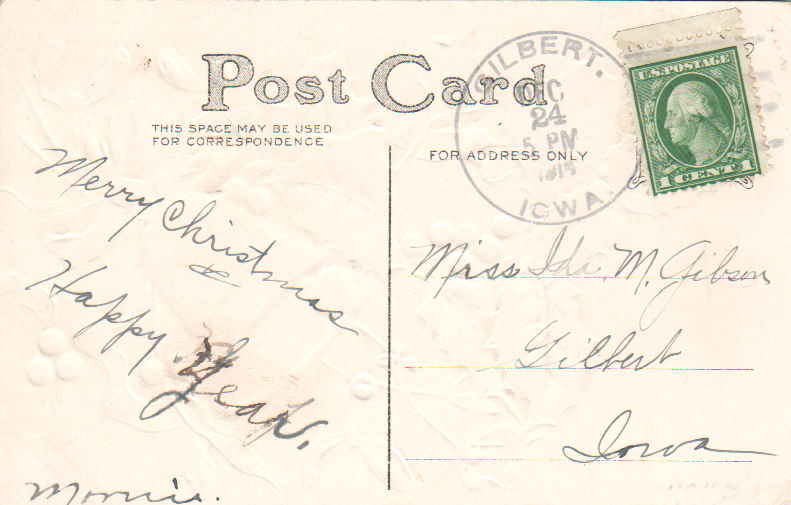 Post Card
THIS SPACE MAY BE USED
FOR CORRESPONDENCE
FOR ADDRESS ONLY
GILBERT.
DEC
24
5 PM
IOWA.
U.S. POSTAGE
1 CENT 1
Merry Christmas
&
Happy Year.
Miss Ida M. Gibson
Gilbert
Iowa